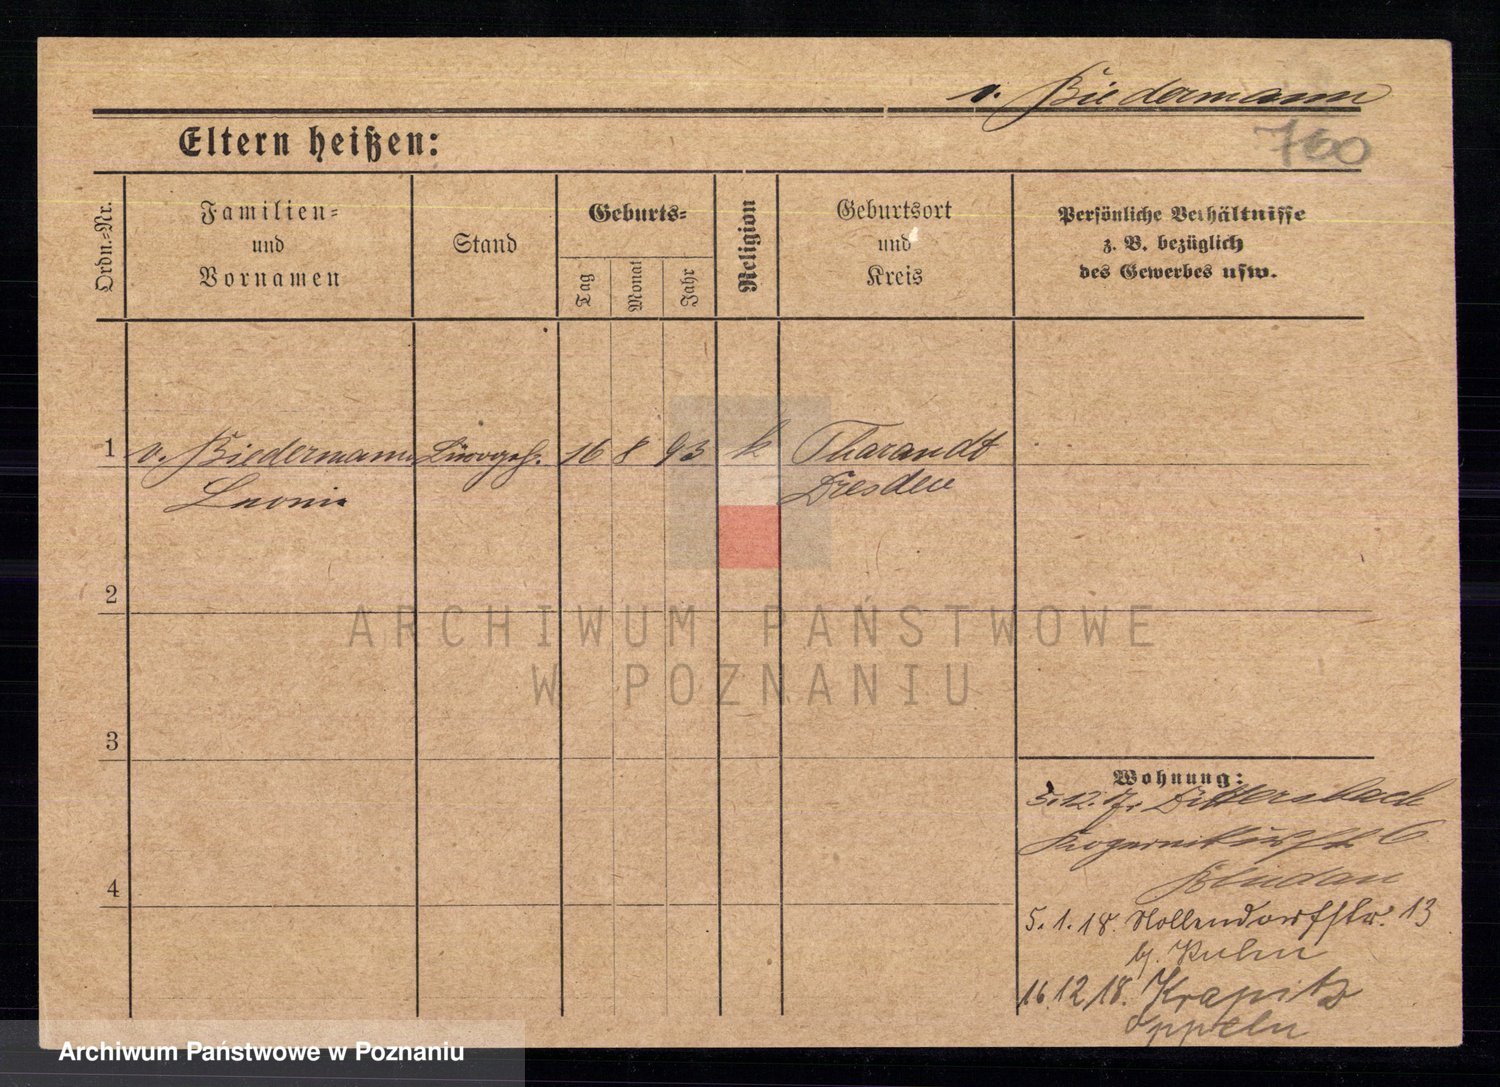 v. Biedermann
760
Eltern heißen:
Ordn.-Nr.
Familien-
und
Vornamen
Stand
Geburts-
Tag
Monat
Jahr
Religion
Geburtsort
und
Kreis
Persönliche Verhältnisse
z. B. bezüglich
des Gewerbes usw.
1 v. Biedermann 16 8 93 k Tharandt
Leonie Dresden
2
3
4
Wohnung:
5.12.17. Dittersbach
6
5.1.18. Nollendorfstr. 13
b/.
16.12.18. Krapitz
Oppeln
ARCHIWUM PAŃSTWOWE
W POZNANIU
Archiwum Państwowe w Poznaniu